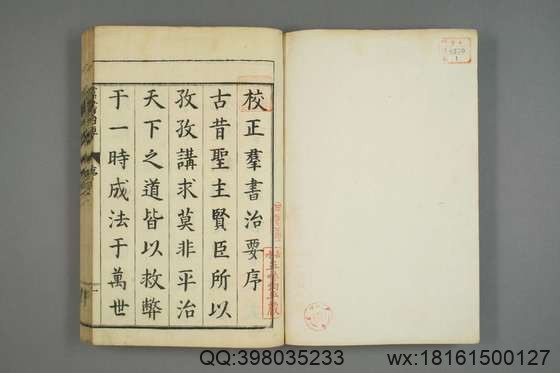 校正羣書治要序
古昔聖主賢臣所以
孜孜講求莫非平治
天下之道皆以救弊
于一時成法于萬世
QQ:398035233
wx:18161500127